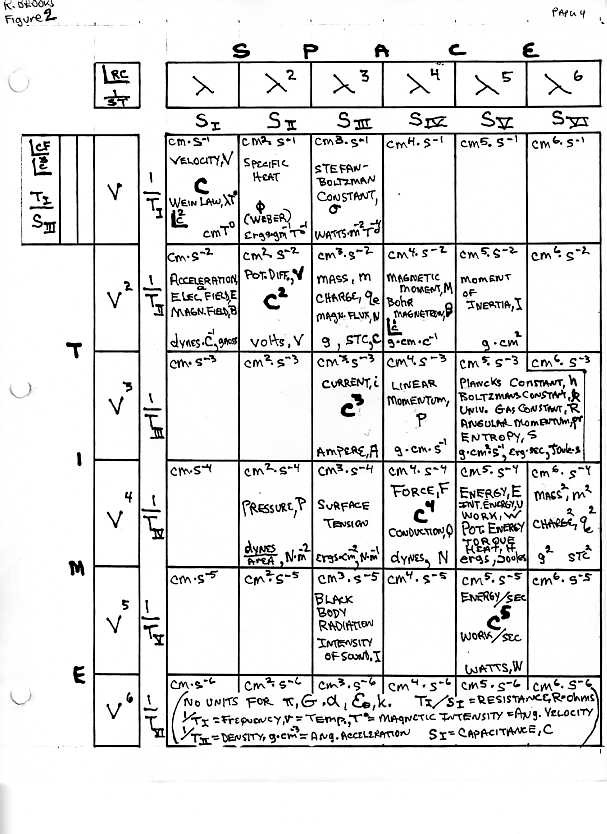 R. BROOKS
Figure 2
PAPER 4
S P A C E
RC
1/ST
λ λ² λ³ λ⁴ λ⁵ λ⁶
S_I S_II S_III S_IV S_V S_VI
T I M E
CF
T_I
S_III
ν 1/T_I
cm·s⁻¹
VELOCITY, V
C
WEIN LAW, λT°
cmT°
cm²·s⁻¹
SPECIFIC
HEAT
Φ
(WEBER)
Ergs·gm⁻¹T°⁻¹
cm³·s⁻¹
STEFAN-
BOLTZMAN
CONSTANT,
σ
WATTS·m⁻²T°⁻⁴
cm⁴·s⁻¹
cm⁵·s⁻¹
cm⁶·s⁻¹
ν² 1/T_II
cm·s⁻²
ACCELERATION, a
ELEC. FIELD, E
MAGN. FIELD, B
dynes·C⁻¹, gauss
cm²·s⁻²
POT. DIFF., V
C²
volts, V
cm³·s⁻²
MASS, m
CHARGE, qₑ
MAGN. FLUX, N
g, STC, C
cm⁴·s⁻²
MAGNETIC
MOMENT, M
Bohr
MAGNETRON, β
g·cm·c⁻¹
cm⁵·s⁻²
MOMENT
OF
INERTIA, I
g·cm²
cm⁶·s⁻²
ν³ 1/T_III
cm·s⁻³
cm²·s⁻³
cm³·s⁻³
CURRENT, i
C³
AMPERE, A
cm⁴·s⁻³
LINEAR
MOMENTUM,
P
g·cm·s⁻¹
cm⁵·s⁻³
PLANCKS CONSTANT, h
BOLTZMANS CONSTANT, k
UNIV. GAS CONSTANT, R
ANGULAR MOMENTUM, pr
ENTROPY, S
g·cm²s⁻¹, Erg·sec, Joule·s
cm⁶·s⁻³
ν⁴ 1/T_IV
cm·s⁻⁴
cm²·s⁻⁴
PRESSURE, P
dynes/AREA, N·m⁻²
cm³·s⁻⁴
SURFACE
TENSION
Ergs·cm⁻², N·m⁻¹
cm⁴·s⁻⁴
FORCE, F
C⁴
CONDUCTION, Q
dynes, N
cm⁵·s⁻⁴
ENERGY, E
INT. ENERGY, U
WORK, W
POT. ENERGY
TORQUE
HEAT, H
ergs, Joules
cm⁶·s⁻⁴
MASS², m²
CHARGE², qₑ²
g² STC²
ν⁵ 1/T_V
cm·s⁻⁵
cm²·s⁻⁵
cm³·s⁻⁵
BLACK
BODY
RADIATION
INTENSITY
OF SOUND, I
cm⁴·s⁻⁵
cm⁵·s⁻⁵
ENERGY/SEC
C⁵
WORK/SEC
WATTS, W
cm⁶·s⁻⁵
ν⁶ 1/T_VI
cm·s⁻⁶ cm²·s⁻⁶ cm³·s⁻⁶ cm⁴·s⁻⁶ cm⁵·s⁻⁶ cm⁶·s⁻⁶
(NO UNITS FOR π, G, α, ε₀, k. T_I/S_I = RESISTANCE, R·ohms
1/T_I = Frequency, ν = Temp., T° = MAGNETIC INTENSITY = Ang. VELOCITY
1/T_II = DENSITY, g·cm⁻³ = Ang. ACCELERATION S_I = CAPACITANCE, C)